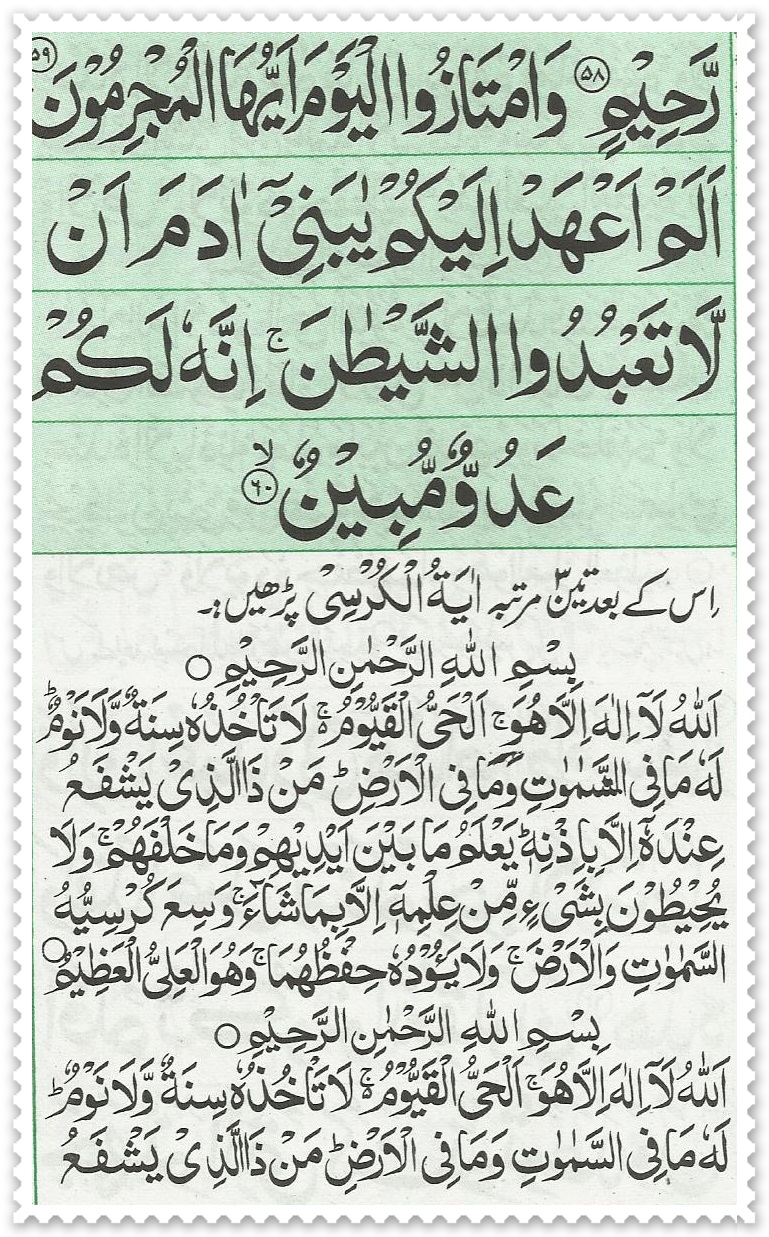 رَّحِیۡمٍ ﴿۵۸﴾ وَامۡتَازُوا الۡیَوۡمَ اَیُّهَا الۡمُجۡرِمُوۡنَ ﴿۵۹﴾
اَلَمۡ اَعۡهَدۡ اِلَیۡكُمۡ یٰبَنِیۡۤ اٰدَمَ اَنۡ
لَّا تَعۡبُدُوا الشَّیۡطٰنَ ۚ اِنَّهٗ لَكُمۡ
عَدُوٌّ مُّبِیۡنٌ ﴿۶۰﴾ ۙ
اِس کے بعد تین ۳ مرتبہ اٰیَةُ الۡكُرۡسِیۡ پڑھیں:۔
بِسۡمِ اللّٰهِ الرَّحۡمٰنِ الرَّحِیۡمِ ○
اَللّٰهُ لَاۤ اِلٰهَ اِلَّا هُوَ ۚ اَلۡحَیُّ الۡقَیُّوۡمُ ۬ۚ لَا تَاۡخُذُهٗ سِنَةٌ وَّلَا نَوۡمٌ ؕ
لَهٗ مَا فِی السَّمٰوٰتِ وَمَا فِی الۡاَرۡضِ ؕ مَنۡ ذَا الَّذِیۡ یَشۡفَعُ
عِنۡدَهٗۤ اِلَّا بِاِذۡنِهٖ ؕ یَعۡلَمُ مَا بَیۡنَ اَیۡدِیۡهِمۡ وَمَا خَلۡفَهُمۡ ۚ وَلَا
یُحِیۡطُوۡنَ بِشَیۡءٍ مِّنۡ عِلۡمِهٖۤ اِلَّا بِمَا شَآءَ ۚ وَسِعَ كُرۡسِیُّهُ
السَّمٰوٰتِ وَالۡاَرۡضَ ۚ وَلَا یَـُٔوۡدُهٗ حِفۡظُهُمَا ۚ وَهُوَ الۡعَلِیُّ الۡعَظِیۡمُ ○
بِسۡمِ اللّٰهِ الرَّحۡمٰنِ الرَّحِیۡمِ ○
اَللّٰهُ لَاۤ اِلٰهَ اِلَّا هُوَ ۚ اَلۡحَیُّ الۡقَیُّوۡمُ ۬ۚ لَا تَاۡخُذُهٗ سِنَةٌ وَّلَا نَوۡمٌ ؕ
لَهٗ مَا فِی السَّمٰوٰتِ وَمَا فِی الۡاَرۡضِ ؕ مَنۡ ذَا الَّذِیۡ یَشۡفَعُ